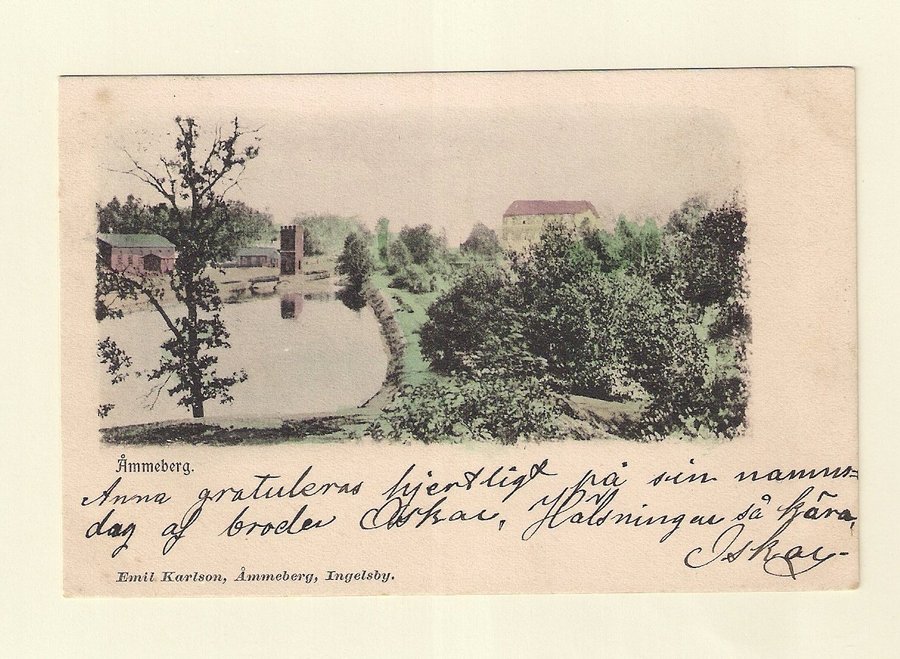 Åmmeberg.
Anna gratuleras hjertligt på sin namns=
dag af broder Oskar. Hälsningar så kära,
Oskar-
Emil Karlson, Åmmeberg, Ingelsby.